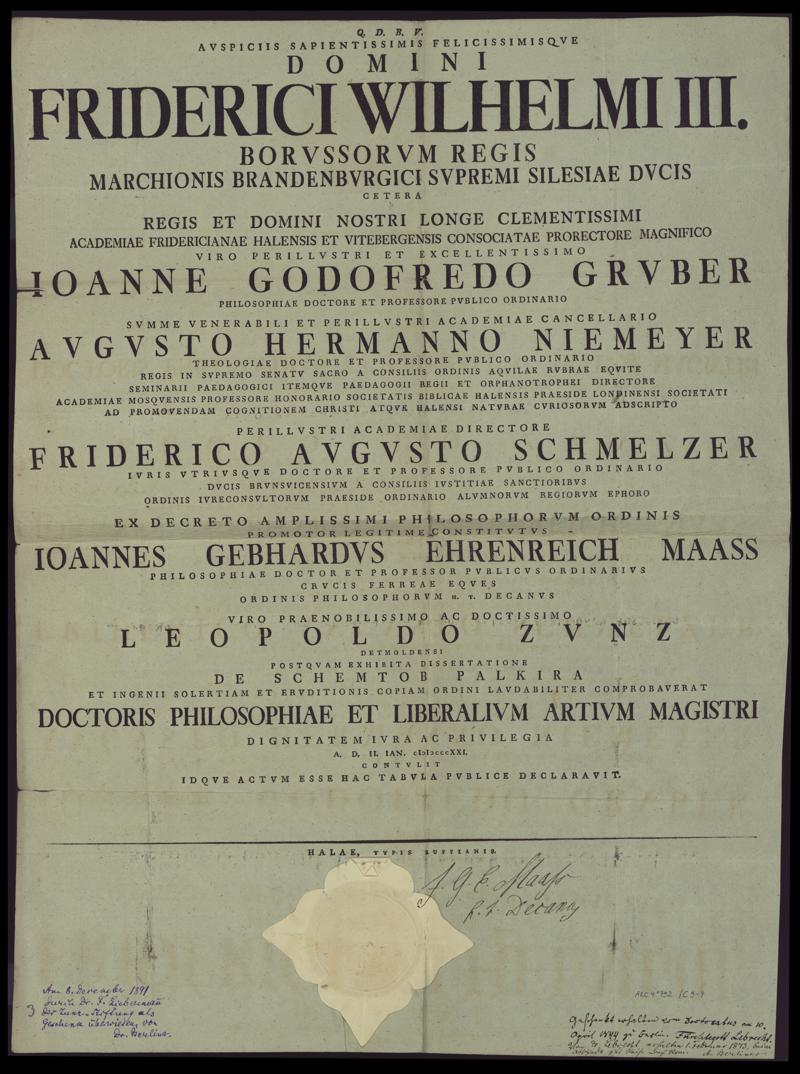 Q. D. B. V.
AVSPICIIS SAPIENTISSIMIS FELICISSIMISQVE
DOMINI
FRIDERICI WILHELMI III.
BORVSSORVM REGIS
MARCHIONIS BRANDENBVRGICI SVPREMI SILESIAE DVCIS
CETERA
REGIS ET DOMINI NOSTRI LONGE CLEMENTISSIMI
ACADEMIAE FRIDERICIANAE HALENSIS ET VITEBERGENSIS CONSOCIATAE PRORECTORE MAGNIFICO
VIRO PERILLVSTRI ET EXCELLENTISSIMO
IOANNE GODOFREDO GRVBER
PHILOSOPHIAE DOCTORE ET PROFESSORE PVBLICO ORDINARIO
SVMME VENERABILI ET PERILLVSTRI ACADEMIAE CANCELLARIO
AVGVSTO HERMANNO NIEMEYER
THEOLOGIAE DOCTORE ET PROFESSORE PVBLICO ORDINARIO
REGIS IN SVPREMO SENATV SACRO A CONSILIIS ORDINIS AQVILAE RVBRAE EQVITE
SEMINARII PAEDAGOGICI ITEMQVE PAEDAGOGII REGII ET ORPHANOTROPHEI DIRECTORE
ACADEMIAE MOSQVENSIS PROFESSORE HONORARIO SOCIETATIS BIBLICAE HALENSIS PRAESIDE LONDINENSI SOCIETATI
AD PROMOVENDAM COGNITIONEM CHRISTI ATQVE HALENSI NATVRAE CVRIOSORVM ADSCRIPTO
PERILLVSTRI ACADEMIAE DIRECTORE
FRIDERICO AVGVSTO SCHMELZER
IVRIS VTRIVSQVE DOCTORE ET PROFESSORE PVBLICO ORDINARIO
DVCIS BRVNSVICENSIVM A CONSILIIS IVSTITIAE SANCTIORIBVS
ORDINIS IVRECONSVLTORVM PRAESIDE ORDINARIO ALVMNORVM REGIORVM EPHORO
EX DECRETO AMPLISSIMI PHILOSOPHORVM ORDINIS
PROMOTOR LEGITIME CONSTITVTVS
IOANNES GEBHARDVS EHRENREICH MAASS
PHILOSOPHIAE DOCTOR ET PROFESSOR PVBLICVS ORDINARIVS
CRVCIS FERREAE EQVES
ORDINIS PHILOSOPHORVM H. T. DECANVS
VIRO PRAENOBILISSIMO AC DOCTISSIMO
LEOPOLDO ZVNZ
DETMOLDENSI
POSTQVAM EXHIBITA DISSERTATIONE
DE SCHEMTOB PALKIRA
ET INGENII SOLERTIAM ET ERVDITIONIS COPIAM ORDINI LAVDABILITER COMPROBAVERAT
DOCTORIS PHILOSOPHIAE ET LIBERALIVM ARTIVM MAGISTRI
DIGNITATEM IVRA AC PRIVILEGIA
A. D. II. IAN. cIↃIↃccccXXI.
CONTVLIT
IDQVE ACTVM ESSE HAC TABVLA PVBLICE DECLARAVIT.
HALAE, TYPIS RVFFIANIS.
J. G. E. Maaß
h. t. Decanus
Am 8. Dezember 1891
durch Dr. F. Liebermann
der Zunz-Stiftung als
Geschenk überwiesen von
Dr. Berliner.
ARC 4° 792 /C9-9
Geschenkt erhalten vom Doctoratus am 10.
April 1844 zu Berlin. Fürchtegott Lebrecht.
Von Dr. Lebrecht erhalten 1. Februar 1873,
A. Berliner